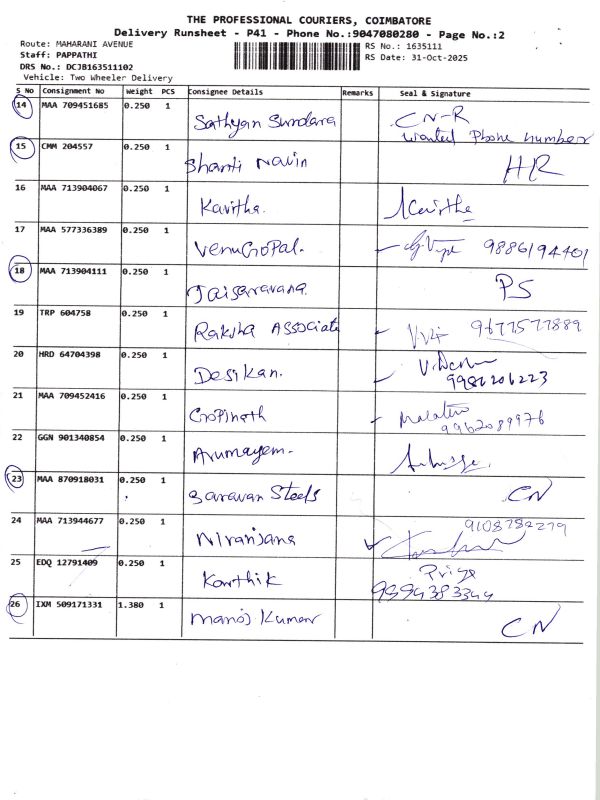 THE PROFESSIONAL COURIERS, COIMBATORE
Delivery Runsheet - P41 - Phone No.:9047080280 - Page No.:2
Route: MAHARANI AVENUE
RS No.: 1635111
Staff: PAPPATHI
RS Date: 31-Oct-2025
DRS No.: DCJB163511102
Vehicle: Two Wheeler Delivery
S No Consignment No Weight PCS Consignee Details Remarks Seal & Signature
14 MAA 709451685 0.250 1 Sathyan Sundara CN-R
wanted Phone number
15 CMM 204557 0.250 1 Shanti Navin HR
16 MAA 713904067 0.250 1 Kavitha. Kavitha
17 MAA 577336389 0.250 1 VenuGopal. 9886194401
18 MAA 713904111 0.250 1 Jaisaravana. PS
19 TRP 604758 0.250 1 Raksha Associate 9677577889
20 HRD 64704398 0.250 1 Desikan.
9986206223
21 MAA 709452416 0.250 1 Gopinath Malathi
9962089976
22 GGN 901340854 0.250 1 Arumayem.
23 MAA 870918031 0.250 1 Saravan Steels CN
24 MAA 713944677 0.250 1 Niranjana 9108782279
25 EDQ 12791409 0.250 1 Karthik Priya
9894383344
26 IXM 509171331 1.380 1 Manoj Kumar CN